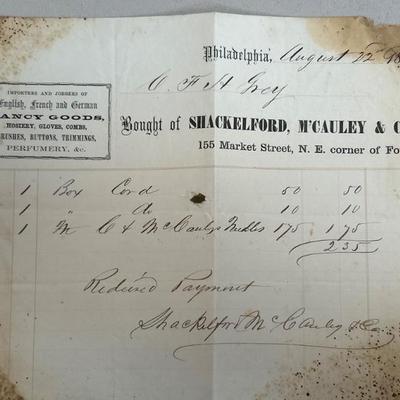 Philadelphia, August 22
IMPORTERS AND JOBBERS OF
English, French and German
FANCY GOODS,
HOSIERY, GLOVES, COMBS,
BRUSHES, BUTTONS, TRIMMINGS,
PERFUMERY, &c.
Grey
Bought of SHACKELFORD, M'CAULEY & C
155 Market Street, N. E. corner of Fo
1 Box Cord 50 50
1 " do 10 10
1 M C & McCauleys Needles 175 1 75
2 35
Received Payment
Shackelford McCauley & Co